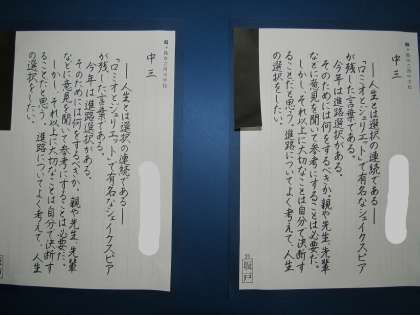 中三
――人生とは選択の連続である――
「ロミオとジュリエット」で有名なシェイクスピア
が残した言葉である。
今年は進路選択がある。
そのためには何をするべきか。親や先生、先輩
などに意見を聞いて参考にすることは必要だ。
しかし、それ以上に大切なことは自分で決断す
ることだと思う。進路についてよく考えて、人生
の選択をしたい。
中三
――人生とは選択の連続である――
「ロミオとジュリエット」で有名なシェイクスピア
が残した言葉である。
今年は進路選択がある。
そのためには何をするべきか。親や先生、先輩
などに意見を聞いて参考にすることは必要だ。
しかし、それ以上に大切なことは自分で決断す
ることだと思う。進路についてよく考えて、人生
の選択をしたい。